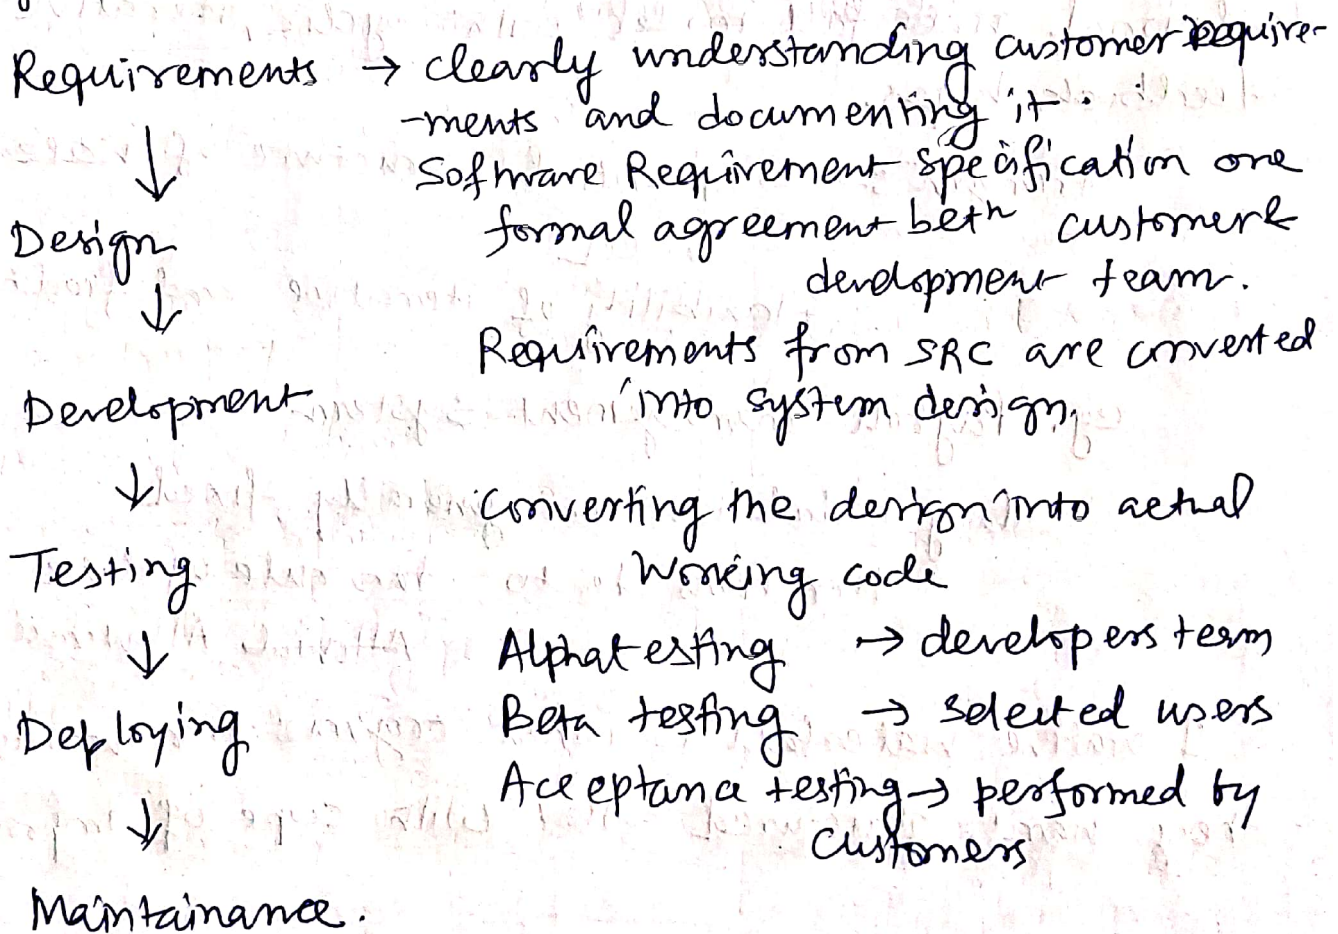 Requirements → clearly understanding customer require-
-ments and documenting it.
Software Requirement specification one
formal agreement betn customer &
development team.
Design
Requirements from SRC are converted
into system design.
Development
Converting the design into actual
working code
Testing
Alpha testing → developers team
Beta testing → selected users
Acceptance testing → performed by
customers
Deploying
Maintainance.